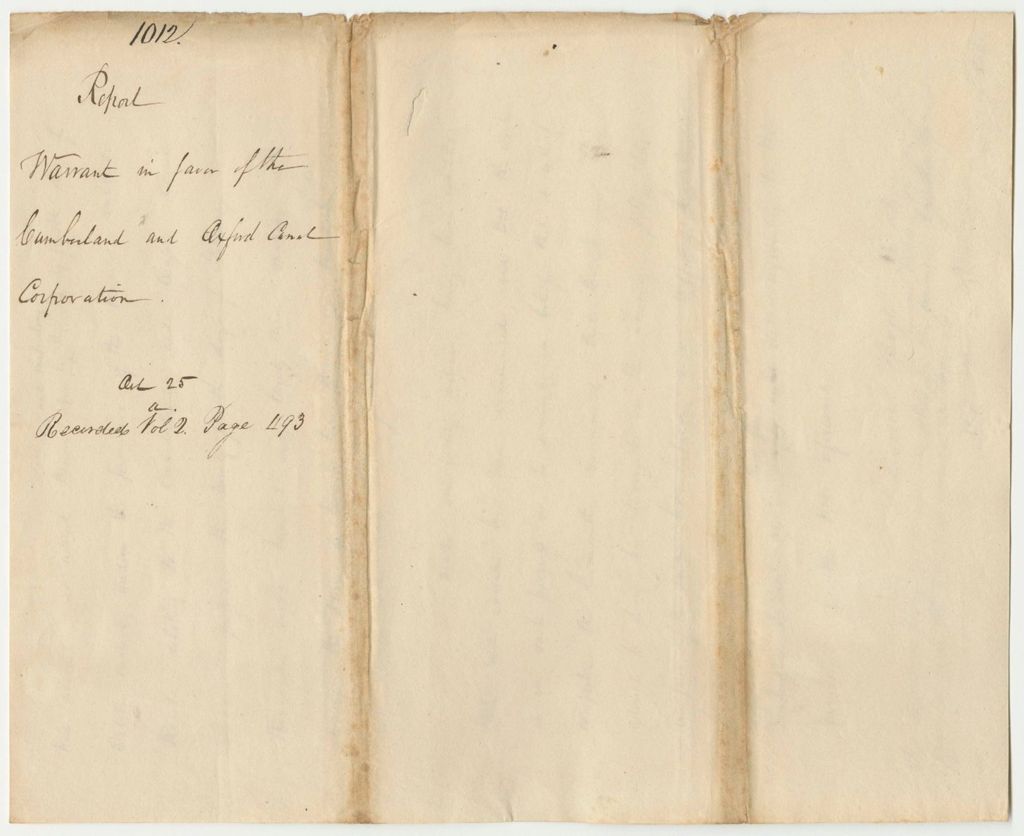 1012.
Report
Warrant in favor of the
Cumberland and Oxford Canal
Corporation.
Oct 25
Recorded Vol 2. Page 493